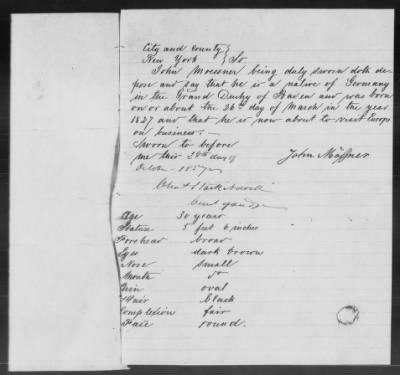 City and County }
New York } Ss.
John Moessner being duly sworn doth de-
pose and say that he is a native of Germany
in the Grand Duchy of Baden and was born
on or about the 26th day of March in the year
1827 and that he is now about to visit Europe
on business:—
Sworn to before
me this 28th day of
October 1857
John Mössner
Age 30 years
Stature 5 feet 6 inches
Forehead broad
Eyes dark brown
Nose small
Mouth do
Chin oval
Hair black
Complexion fair
Face round.